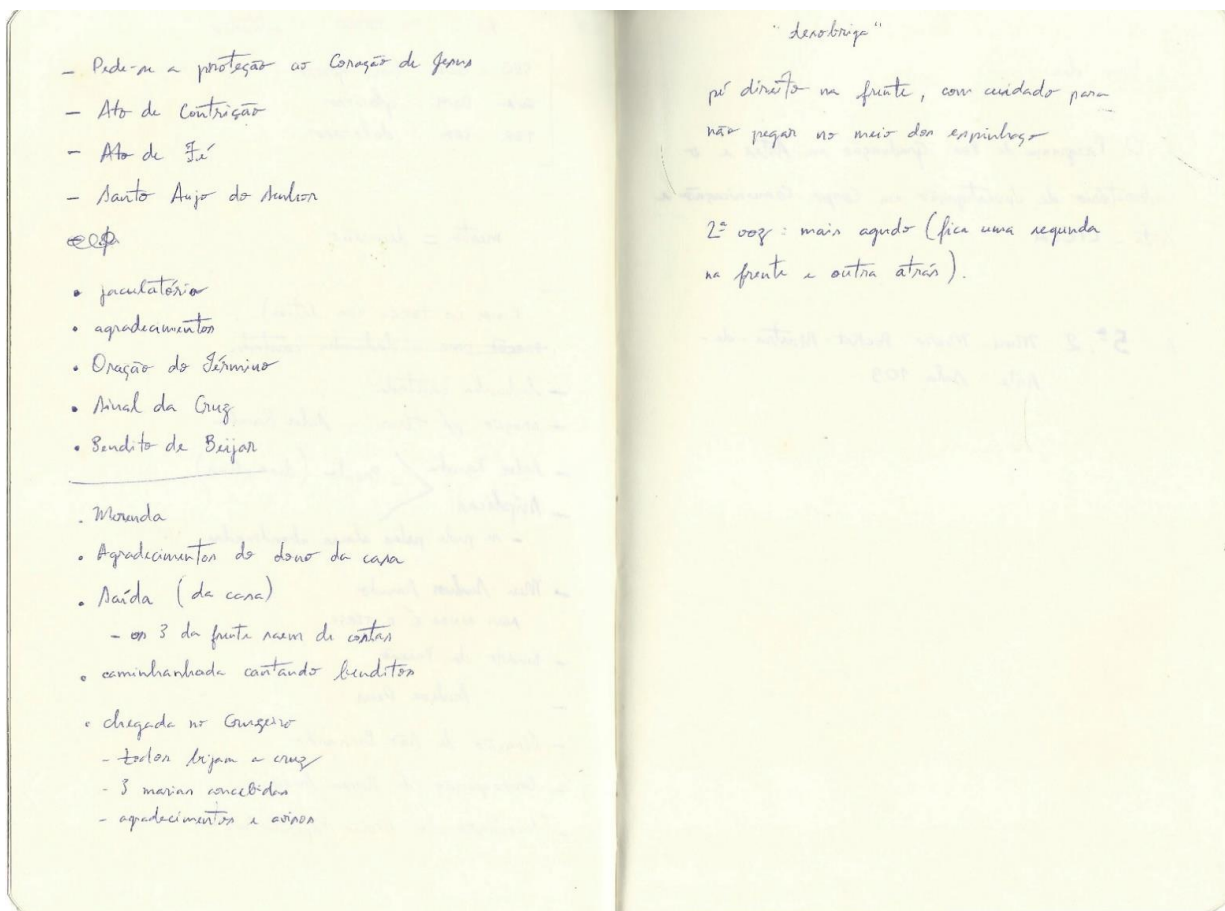 - Pede-se a proteção ao Coração de Jesus
- Ato de Contrição
- Ato de Fé
- Santo Anjo do Senhor
• jaculatória
• agradecimentos
• Oração do Término
• Sinal da Cruz
• Bendito de Beijar
• Merenda
• Agradecimentos do dono da casa
• Saída (da casa)
- os 3 da frente saem de costas
• caminhanhada cantando benditos
• chegada no Cruzeiro
- todos beijam a cruz
- 3 marias concebidas
- agradecimentos e avisos
"desobriga"
pé direito na frente, com cuidado para
não pegar no meio dos espinhaço
2ª voz: mais agudo (fica uma segunda
na frente e outra atrás).